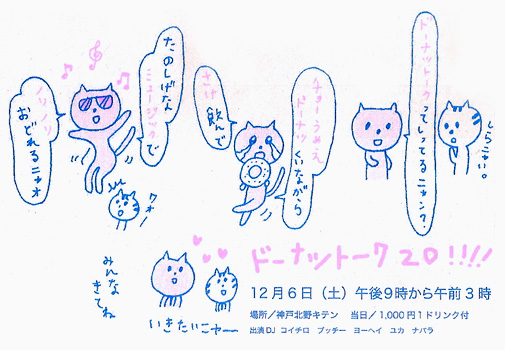 ドーナットークってしってるニャン？
しらニャい。
チョーうみぇ
ドーナッツ
くいながら
さけ飲んで
たのしげな
ミュージックで
ノリノリ
おどれるニャオ
ワォー
みんな
きてね
いきたいニャー
ドーナットーク20!!!!
12月6日（土）午後9時から午前3時
場所／神戸北野キテン　当日／1,000円1ドリンク付
出演DJ　コイチロ　ブッチー　ヨーヘイ　ユカ　ナパラ